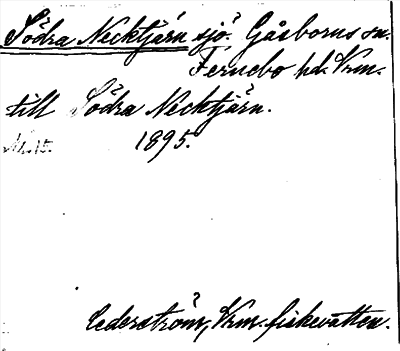 Södra Necktjärn sjö. Gåsborns sn.
Fernebo hd. Vrm.
till Södra Necktjärn.
1895.
Cederström, Vrm. fiskevatten.